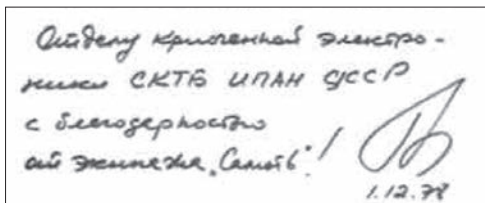 Отделу криогенной электро-
ники СКТБ ИПАН УССР
с благодарностью
от экипажа „Салют“!
1.12.78